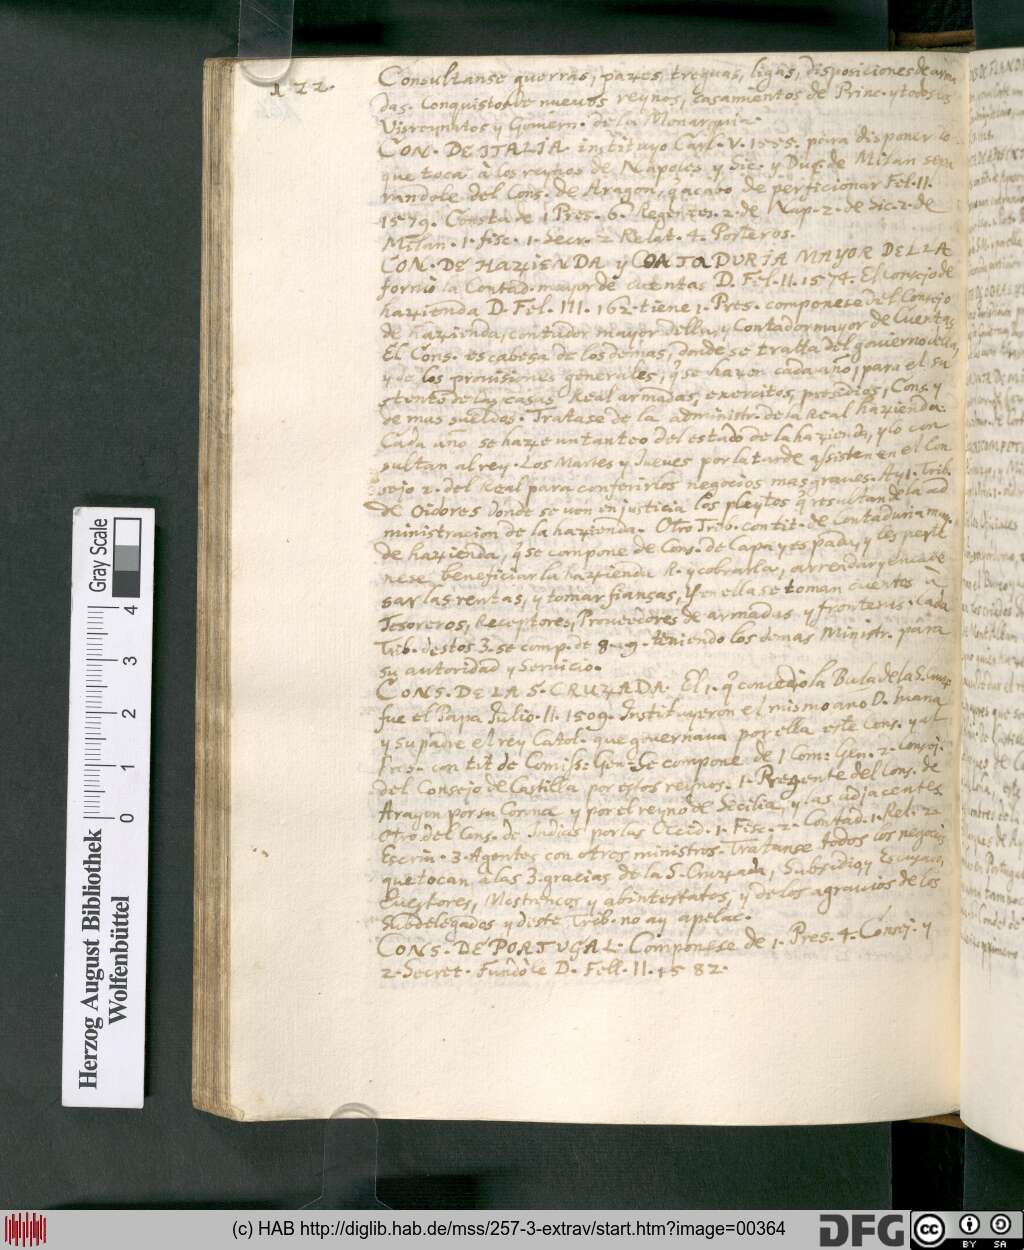 122.
Consultanse guerras, pazes, treguas, ligas, disposiciones de arma
das. Conquistos de nuevos reynos, casamientos de Princ. y todos los
Visreynatos y Goviern. de la Monarquia.
CON. DE ITALIA instituyo Carl. V. 1555. para disponer lo
que toca à los reynos de Napoles y Sic. y Duq. de Milan sepa
randole del Cons. de Aragon, q acabo de perficionar Fel. II.
1579. Consta de 1 Pres. 6. Regentes. 2. de Nap. 2. de Sic. 2. de
Milan. 1. fisc. 1. Secr. 2 Relat. 4. Porteros.
CON. DE HAZIENDA y CONTADURIA MAYOR DELLA
formò la Contad. mayor de cuentas D. Fel. II. 1574. El consejo de
hazienda D. Fel. III. 162. tiene 1. Pres. componese del Consejo
de hazienda, contador mayor della, y Contador mayor de Cuentas
El Cons. es cabesa de los demas, donde se tratta del gouierno della,
y de los provisiones generales, q̃ se hazen cada año, para el su
stento de las casas Real armadas, exercitos, presidios, Cons. y
de mas sueldos. Tratase de la administr. de la Real hazienda.
Cada año se haze un tanteo del estado de la hazienda, y lo con
sultan al rey. Los Martes y Jueves por la tarde assisten en el Con
sejo 2. del Real para conferirlos negocios mas graves. Ay 1. Trib.
de Oidores donde se ven en justicia los pleytos q̃ resultan de la ad
ministracion de la hazienda. Otro Trib. con tit. de Contaduria may.
de hazienda, q̃ se compone de Cons. de Capa y espada, y les perte
nese beneficiar la hazienda R. y cobrarla, arrendar y encabe
sar las rentas, y tomar fianças, y en ella se toman cuentos à
Tesoreros, Receptores, Proveedores de armadas y fronteras. Cada
Trib. destos 3. se comp. de 8. 9. teniendo los demas Ministr. para
su autoridad y Servicio.
CONS. DE LA S. CRUZADA. El 1. q̃ concedio la Bula de la S. Cruz.
fue el Papa Julio. II. 1509. Instituyeron el mismo ano D. Juana
y su padre el rey Catol. que governava por ella este Cons. y al
Pres. con tit de Comiss. Gen. Se compone de 1 Com. Gen. 2. Consej.
del Consejo de Castilla por estos reynos. 1. Regente del Cons. de
Aragon por su Corona y por el reyno de Secilia, y las adjacentes
Otro del Cons. de Indias por las Occid. 1. Fisc. 2. Contad. 1. Rel. 2.
Escriv. 3. Agentes con otros ministros. Tratanse todos los negocios
que tocan à las 3. gracias de la S. Cruzada, Subsidio, y Escusado,
Questores, Mostrencos y abintestatos, y de los agravios de los
Subdelegados y deste Trib. no ay apelac.
CONS. DE PORTUGAL. Componese de 1. Pres. 4. Consej. y
2. Secret. Fundòle D. Fell. II. 1582.
Herzog August Bibliothek
Wolfenbüttel
Gray Scale
0 1 2 3 4
(c) HAB http://diglib.hab.de/mss/257-3-extrav/start.htm?image=00364
DFG
cc BY SA